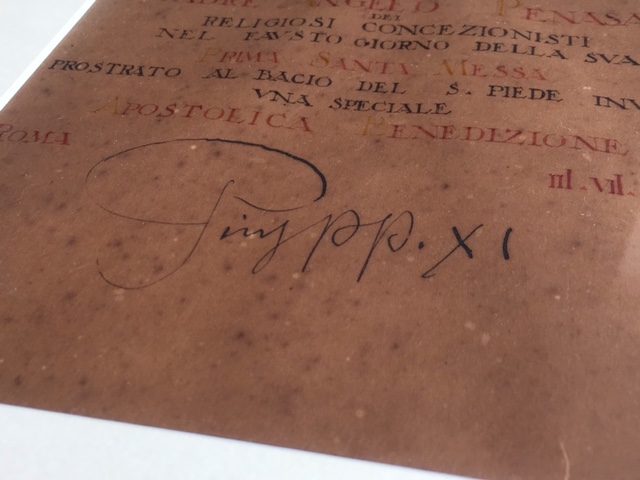 PADRE ANGELO PENASA
DEI
RELIGIOSI CONCEZIONISTI
NEL FAVSTO GIORNO DELLA SVA
PRIMA SANTA MESSA
PROSTRATO AL BACIO DEL S. PIEDE INV
VNA SPECIALE
APOSTOLICA BENEDIZIONE
ROMA
III.VII.
Pius pp. XI